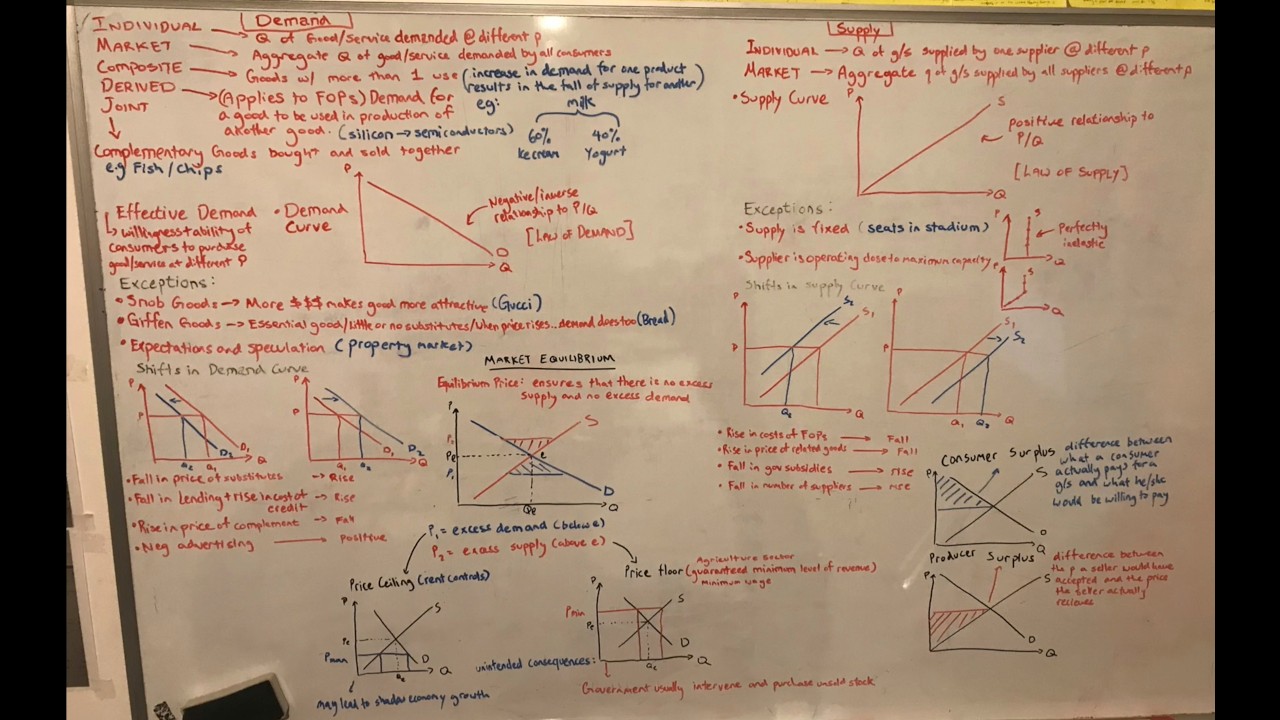 Demand
INDIVIDUAL → Q of Good/Service demanded @ different p
MARKET → Aggregate Q of good/service demanded by all consumers
COMPOSITE → Goods w/ more than 1 use (increase in demand for one product
results in the fall of supply for another)
DERIVED → (Applies to FOPs) Demand for
a good to be used in production of
another good. (silicon → semiconductors)
eg: milk
60% 40%
Icecream Yogurt
JOINT
↓
Complementary Goods bought and sold together
e.g Fish/Chips
Effective Demand
↳ willingness + ability of
consumers to purchase
good/service at different P
• Demand
Curve
P
D
Q
Negative/inverse
relationship to P/Q
[LAW OF DEMAND]
Exceptions:
• Snob Goods → More $$$ makes good more attractive (Gucci)
• Giffen Goods → Essential good/little or no substitutes/when price rises.. demand does too (Bread)
• Expectations and speculation (property market)
Shifts in Demand Curve
P
P
D₂ D₁
Q₂ Q₁ Q
P
P
D₁ D₂
Q₁ Q₂ Q
• Fall in price of substitutes → Rise
• Fall in lending + rise in cost of → Rise
credit
• Rise in price of complement → Fall
• Neg advertising → Positive
MARKET EQUILIBRIUM
Equilibrium Price: ensures that there is no excess
supply and no excess demand
P
S
Pe
e
P₁
D
Qe
Q
P₁ = excess demand (below e)
P₂ = excess supply (above e)
Price Ceiling (rent controls)
P
S
Pe
Pmax
D
Qe
Q
may lead to shadow economy growth
Agriculture sector
Price floor (guaranteed minimum level of revenue)
minimum wage
P
Pmin
S
Pe
D
Qe
Q
unintended consequences:
Government usually intervene and purchase unsold stock
Supply
INDIVIDUAL → Q of g/s supplied by one supplier @ different p
MARKET → Aggregate q of g/s supplied by all suppliers @ different p
• Supply Curve
P
S
Q
positive relationship to
P/Q
[LAW OF SUPPLY]
Exceptions:
• Supply is fixed (seats in stadium)
P
S
Q
Perfectly
inelastic
• Supplier is operating close to maximum capacity
P
S
Q
Shifts in supply Curve
P
S₂
S₁
P
Q₂
Q
P
S₁
S₂
P
Q₁ Q₂ Q
• Rise in costs of FOPs → Fall
• Rise in price of related goods → Fall
• Fall in gov subsidies → rise
• Fall in number of suppliers → rise
Consumer Surplus
difference between
what a consumer
actually pays for a
g/s and what he/she
would be willing to pay
P
S
D
Q
Producer Surplus
difference between
the p a seller would have
accepted and the price
the seller actually
recieves
P
S
D
Q